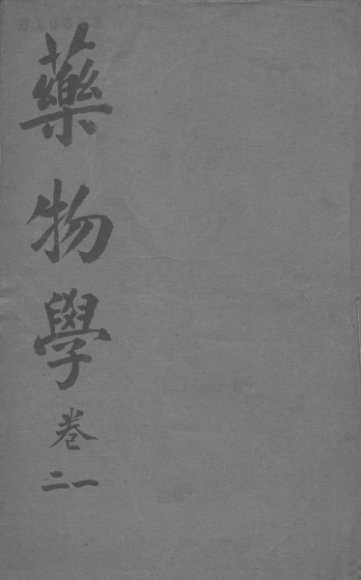 藥物學
卷
一二